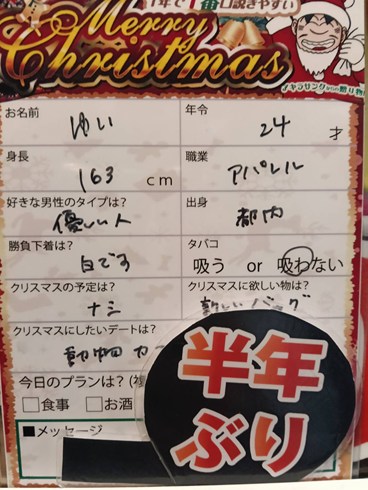 1年で1番口説きやすい
Merry
Christmas
お名前 ゆい
年令 24 才
身長 163 cm
職業 アパレル
好きな男性のタイプは? 優しい人
出身 都内
勝負下着は? 白です
タバコ 吸う or 吸わない
クリスマスの予定は? ナシ
クリスマスに欲しい物は? 新しいバッグ
クリスマスにしたいデートは? 動物カフ
今日のプランは?(複
□食事 □お酒
■メッセージ
半年
ぶり